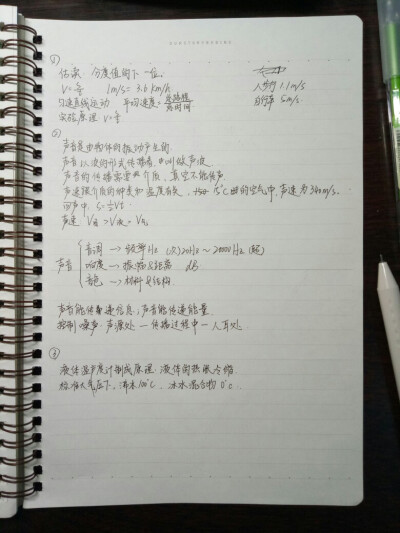 ①
估读 分度值的下一位.
V=s/t 1m/s = 3.6 km/h 人步行 1.1m/s
匀速直线运动 平均速度=总路程/总时间 自行车 5m/s
实验原理 V=s/t
②
声音是由物体的振动产生的.
声音以波的形式传播着,叫做声波
声音的传播需要介质,真空不能传声.
声速跟介质的种类和温度有关, 15℃时的空气中,声速为340m/s.
回声中. S=½Vt
声速 V固>V液>V气
声音
音调 → 频率Hz (人)20Hz~20000Hz
响度 → 振幅&距离 dB
音色 → 材料&结构
声音能传递信息,声音能传递能量.
控制噪声:声源处—传播过程中—人耳处.
③
液体温度计制成原理:液体的热胀冷缩.
标准大气压下,沸水100℃, 冰水混合物0℃.